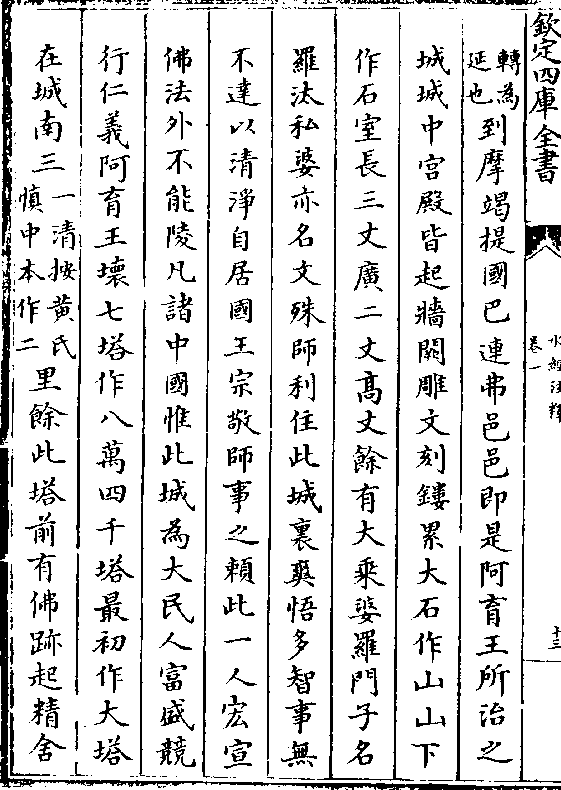 欽定四庫全書
水經注釋
卷一
十三
轉為
延也
到摩竭提國巴連弗邑邑即是阿育王所治之
城城中宮殿皆起牆闕雕文刻鏤累大石作山山下
作石室長三丈廣二丈髙丈餘有大乘婆羅門子名
羅汰私婆亦名文殊師利住此城裏爽悟多智事無
不達以清淨自居國王宗敬師事之賴此一人宏宣
佛法外不能陵凡諸中國惟此城為大民人富盛競
行仁義阿育王壞七塔作八萬四千塔最初作大塔
在城南三
一清按黄氏
慎中本作二
里餘此塔前有佛跡起精舍